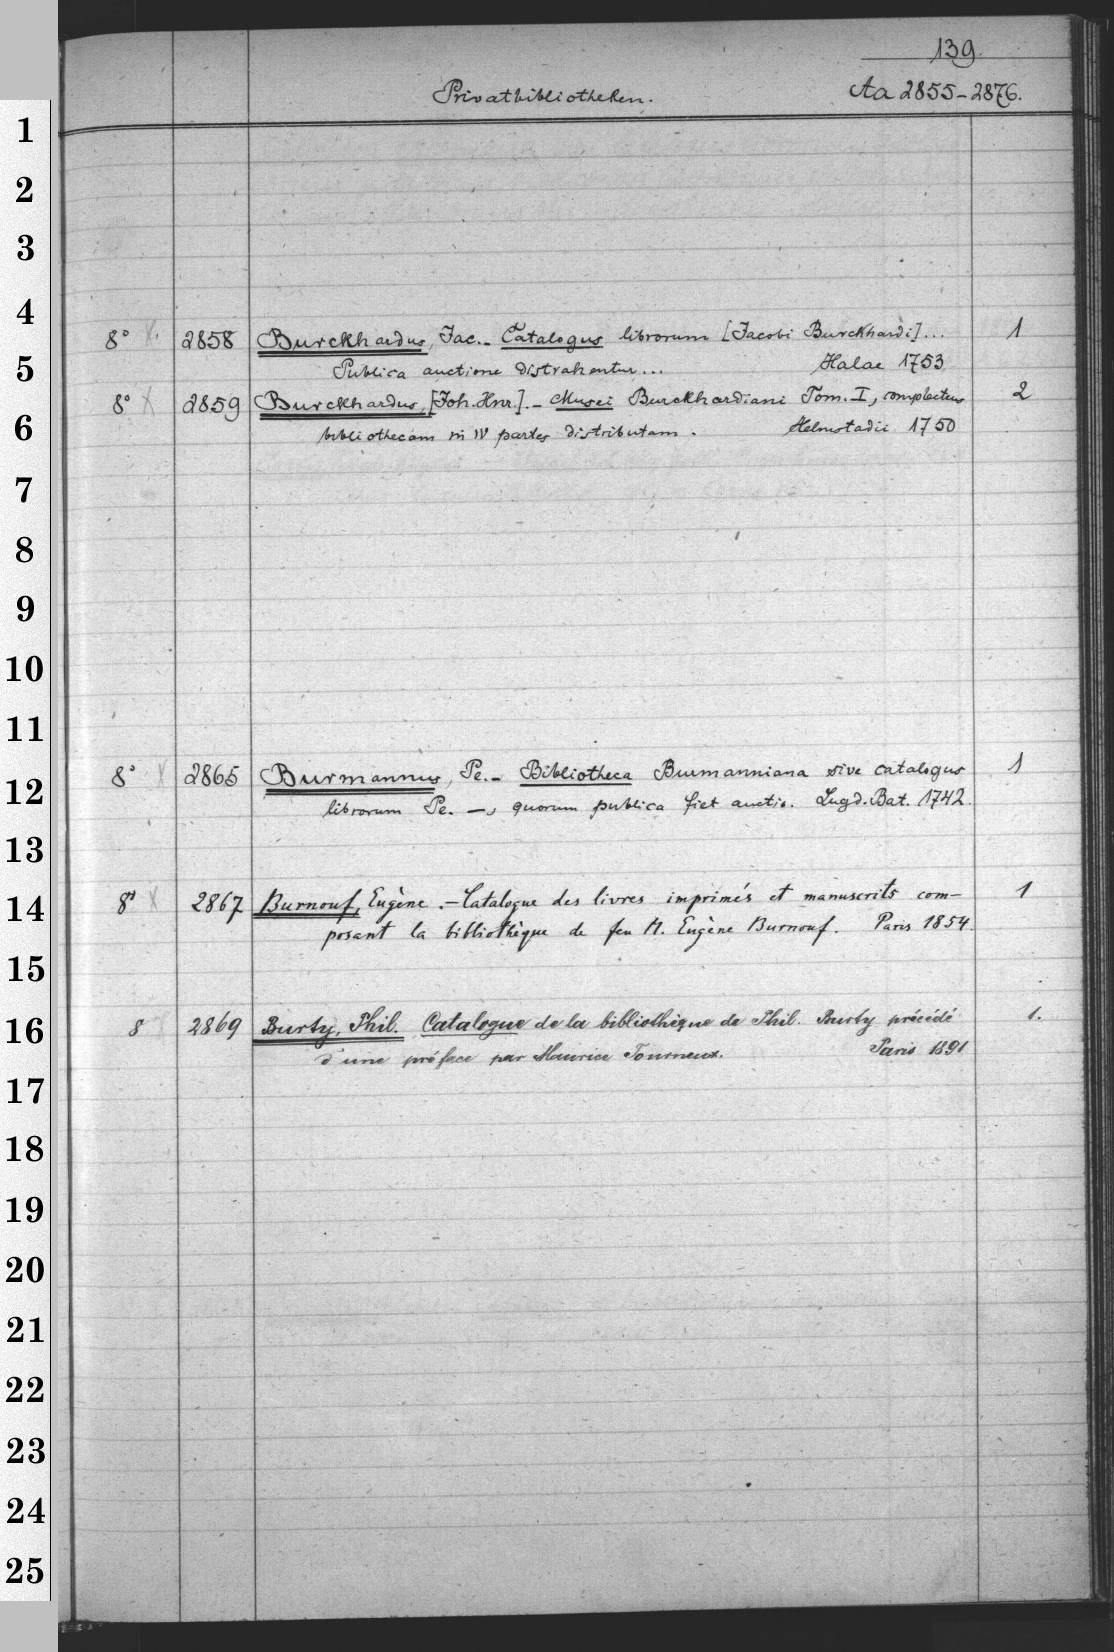 139.
Privatbibliotheken. Aa 2855-2876.
1
2
3
4
8° X. 2858 Burckhardus, Jac. - Catalogus librorum [Jacobi Burckhardi]... 1
5
Publica auctione distrahentur... Halae 1753
8° X 2859 Burckhardus, [Joh. Hnr.]. - Musei Burckhardiani Tom. I, complectens 2
6
bibliothecam in IV partes distributam. Helmstadii 1750
7
8
9
10
11
8° X 2865 Burmannus, Pe. - Bibliotheca Burmanniana sive catalogus 1
12
librorum Pe. —, quorum publica fiet auctio. Lugd. Bat. 1742.
13
8° X 2867 Burnouf, Eugène. - Catalogue des livres imprimés et manuscrits com- 1
14
posant la bibliothèque de feu M. Eugène Burnouf. Paris 1854.
15
8 2869 Burty, Phil. Catalogue de la bibliothèque de Phil. Burty précédé 1.
16
d'une préface par Maurice Tourneux. Paris 1891
17
18
19
20
21
22
23
24
25